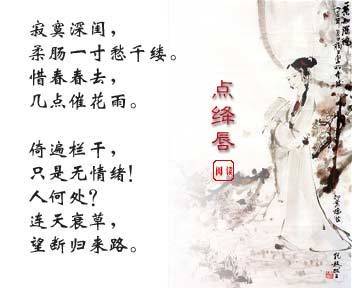 寂寞深闺，
柔肠一寸愁千缕。
惜春春去，
几点催花雨。
倚遍栏干，
只是无情绪！
人何处？
连天衰草，
望断归来路。
点绛唇
阅读